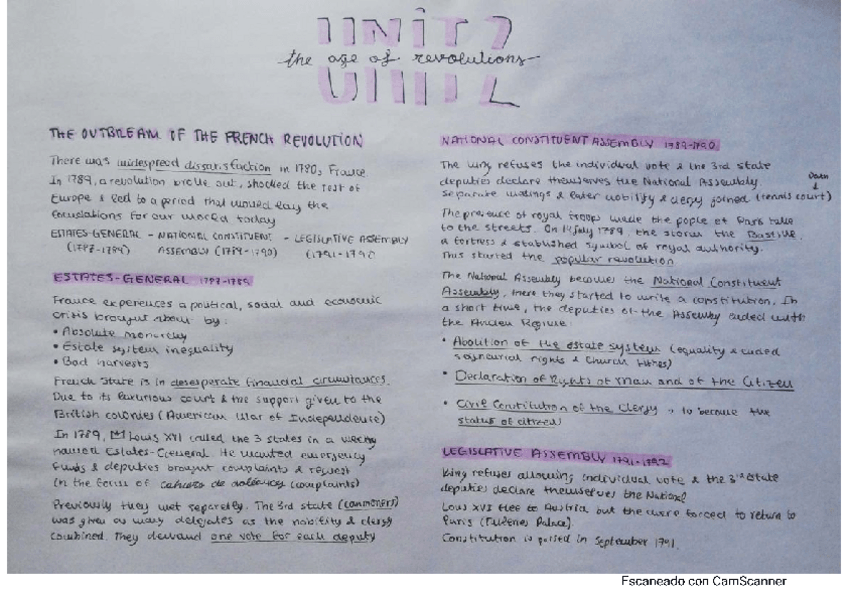 UNIT 2
the age of revolutions
THE OUTBREAK OF THE FRENCH REVOLUTION
There was widespread dissatisfaction in 1780, France
In 1789, a revolution broke out, shocked the rest of
Europe & led to a period that would lay the
foundations for our world today
ESTATES-GENERAL - NATIONAL CONSTITUENT - LEGISLATIVE ASSEMBLY
(1787-1789) ASSEMBLY (1789-1790) (1791-1792)
ESTATES-GENERAL 1787-1789
France experiences a political, social and economic
crisis brought about by:
• Absolute monarchy
• Estate system inequality
• Bad harvests
French State is in desesperate financial circumstances.
Due to its luxurious court & the support given to the
British colonies (American War of Independence)
In 1789, Louis XVI called the 3 states in a
named Estates-General. He wanted emergency
funds & deputies brought complaints & request
in the form of (complaints)
Previously they met separately. The 3rd state (commoners)
was given as many delegates as the nobility & clergy
combined. They demand one vote for each deputy
NATIONAL CONSTITUENT ASSEMBLY 1789-1790
The king refuses the individual vote & the 3rd state
deputies declare themselves the National Assembly.
separate meetings & later nobility & clergy joined (tennis court)
The presence of royal troops made the people of Paris take
to the streets. On 14 July 1789, the storm the Bastille,
a fortress & stablished symbol of royal authority.
This started the popular revolution
The National Assembly becomes the National Constituent
Assembly, here they started to write a constitution. In
a short time, the deputies of the Assembly ended with
the Ancien Regime:
• Abolition of the estate system (equality & ended
seigneurial rights & Church tithes)
• Declaration of Rights of Man and of the Citizen
• Civil Constitution of the Clergy → to become the
status of citizens
LEGISLATIVE ASSEMBLY 1791-1792
King refuses allowing individual vote & the 3rd state
deputies declare themselves the National
Louis XVI flee to Austria but the were forced to return to
Paris (Palace).
Constitution is passed in September 1791.
Escaneado con CamScanner